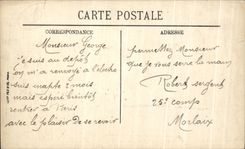 CARTE POSTALE
CORRESPONDANCE
Monsieur George
je suis au depot
on m'a renvoyé a l'
suis 2 mois
mais espere bientot
rentrer a Paris
avec le plaisir de se revoir
ADRESSE
permettez Monsieur
que je vous serre la main
Robert sergent
25e comp
Morlaix